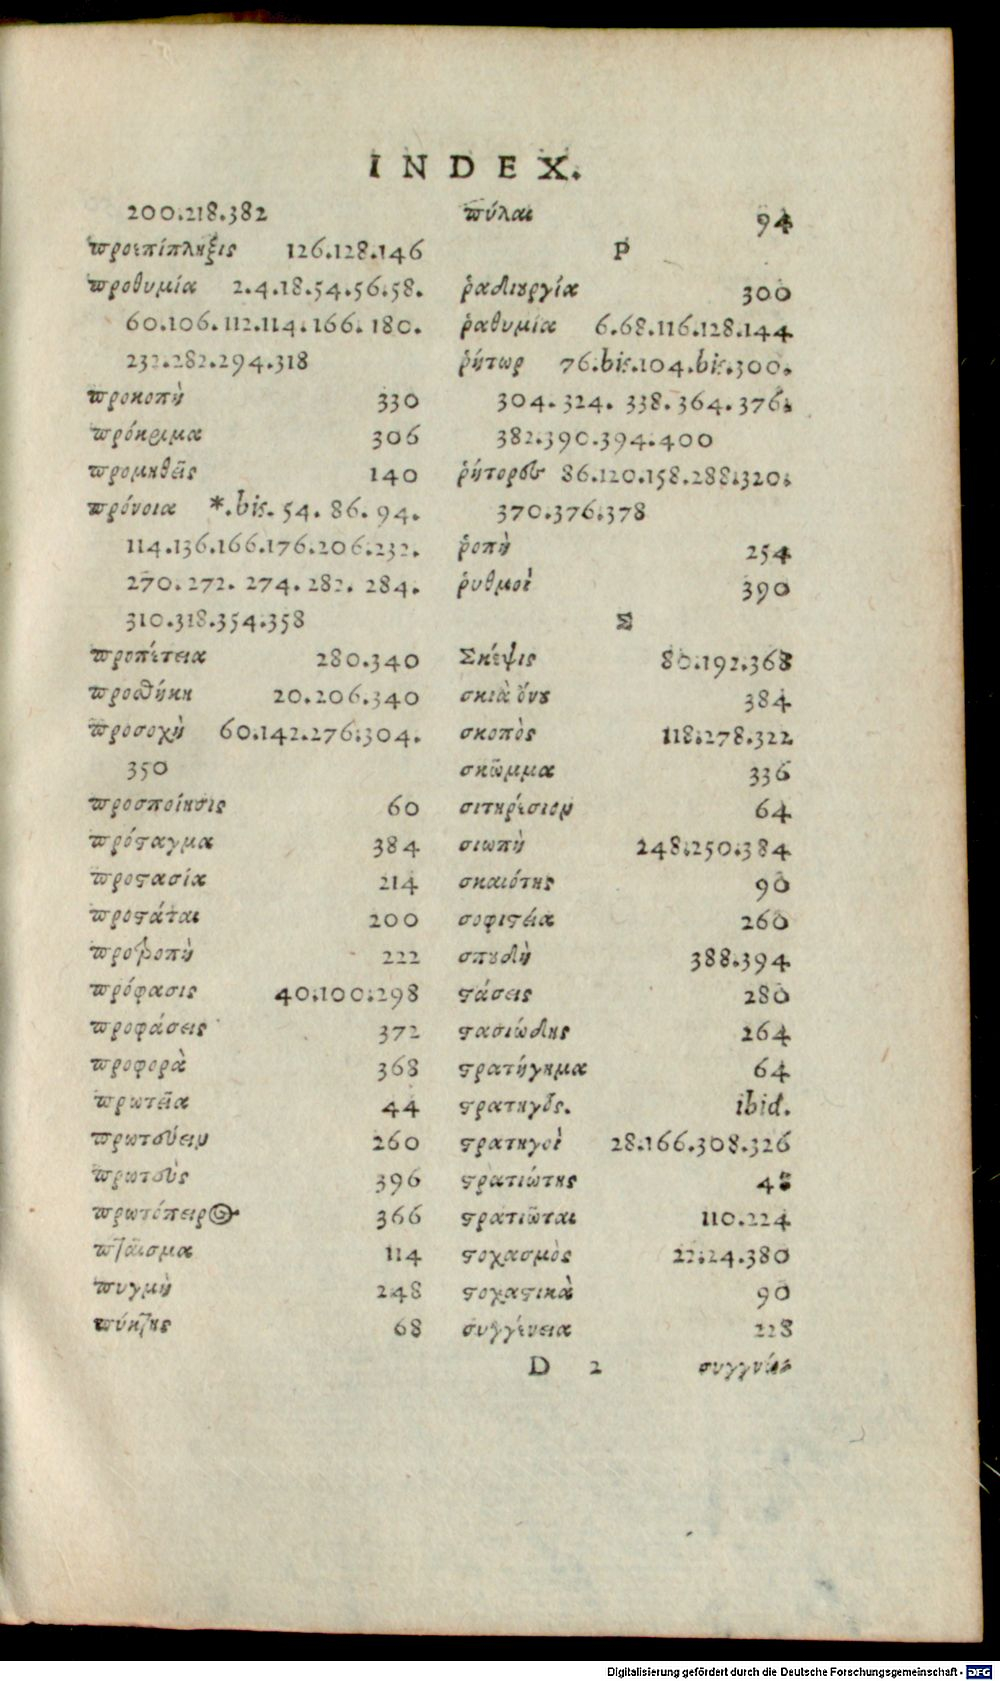 INDEX.
200.218.382
προεπίπληξις 126.128.146
προθυμία 2.4.18.54.56.58.
60.106.112.114.166.180.
232.282.294.318
προκοπὴ 330
πρόκριμα 306
προμηθεῖς 140
πρόνοια *.bis. 54. 86. 94.
114.136.166.176.206.232.
270.272. 274. 282. 284.
310.318.354.358
προπέτεια 280.340
προσθήκη 20.206.340
προσοχὴ 60.142.276.304.
350
προσποίησις 60
πρόσταγμα 384
προστασία 214
προστάται 200
προτροπὴ 222
πρόφασις 40.100.298
προφάσεις 372
προφορὰ 368
πρωτεῖα 44
πρωτεύειν 260
πρωτεὺς 396
πρωτόπειρος 366
πταῖσμα 114
πυγμὴ 248
πύκτης 68
πύλαι 94
Ρ
ῥαδιουργία 300
ῥαθυμία 6.68.116.128.144
ῥήτωρ 76.bis.104.bis.300.
304. 324. 338. 364. 376.
382.390.394.400
ῥήτορες 86.120.158.288.320.
370.376.378
ῥοπὴ 254
ῥυθμοὶ 390
Σ
Σκέψις 80.192.368
σκιὰ ὄνου 384
σκοπὸς 118.278.322
σκῶμμα 336
σιτηρέσιον 64
σιωπὴ 248.250.384
σκαιότης 90
σοφιστεία 260
σπουδὴ 388.394
στάσεις 280
στασιώδης 264
στρατήγημα 64
στρατηγὸς. ibid.
στρατηγοὶ 28.166.308.326
στρατιώτης
στρατιῶται 110.224
στοχασμὸς 22.24.380
στοχαστικὰ 90
συγγένεια 228
D 2 συγγνώ-
Digitalisierung gefördert durch die Deutsche Forschungsgemeinschaft - DFG